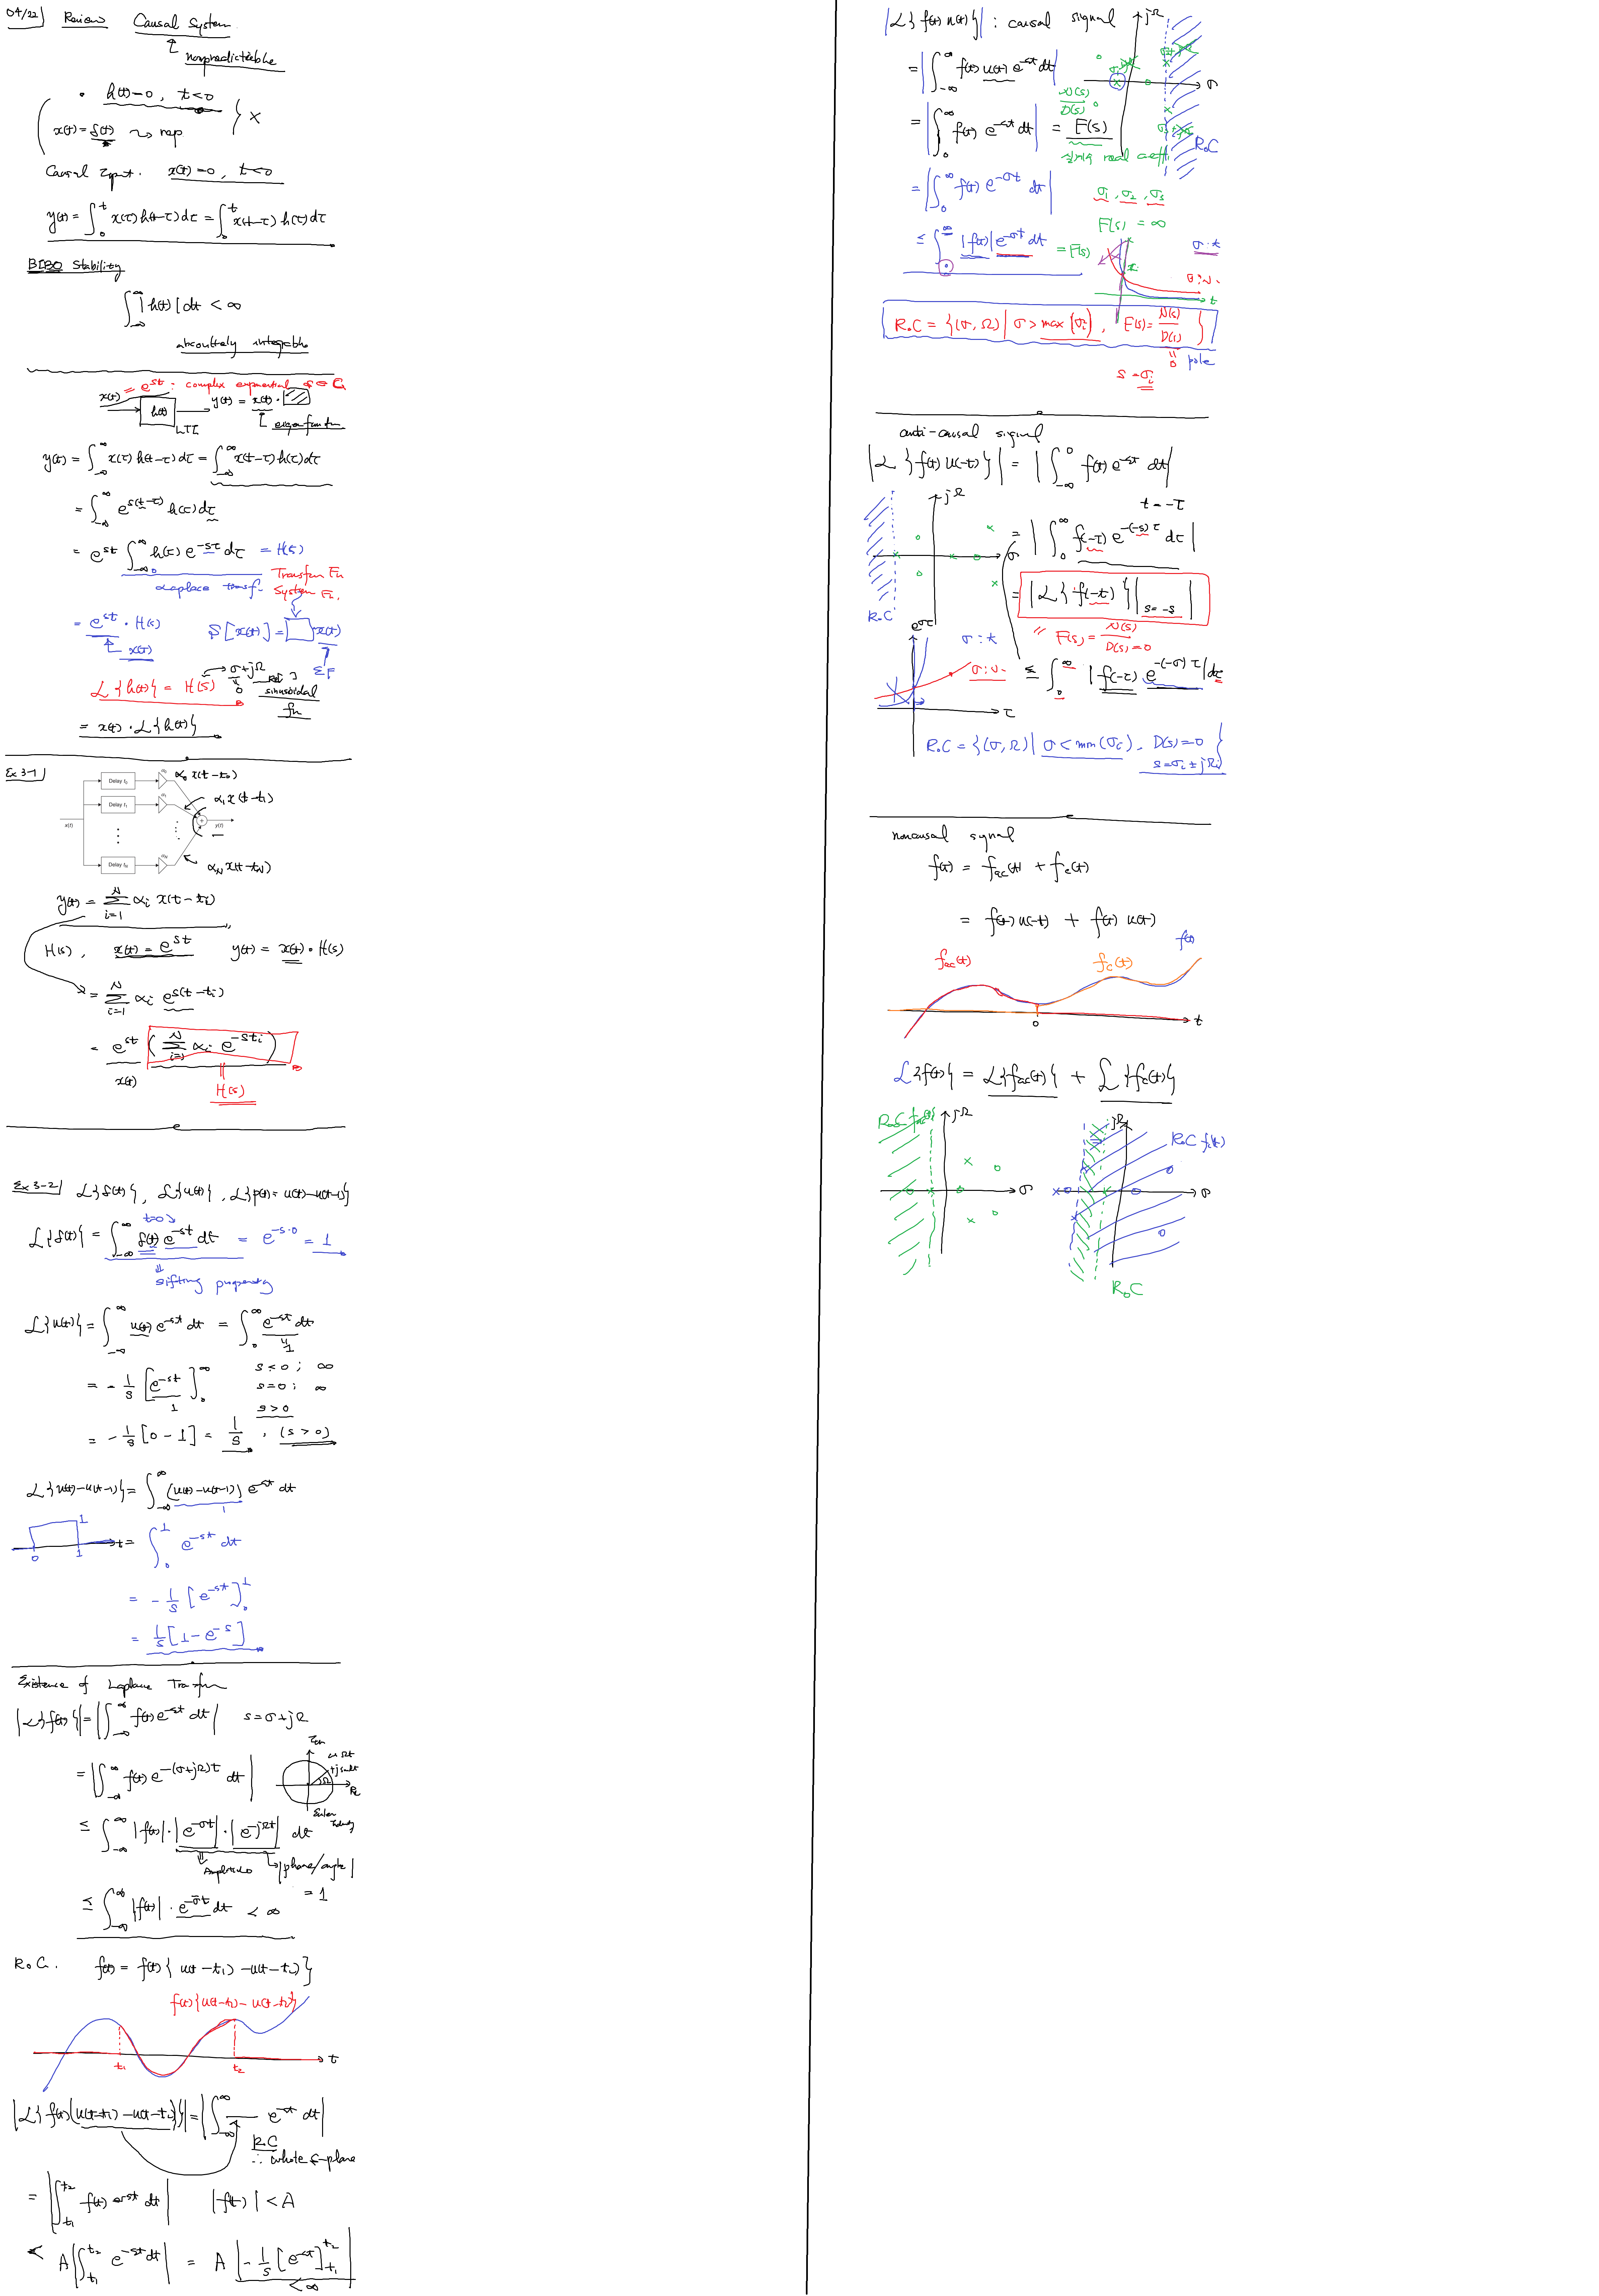 04/22) Review Causal System
nonpredictable
• h(t)=0, t<0 } X
x(t)=δ(t) ~> rep
Causal Input. x(t)=0, t<0
y(t) = ∫_0^t x(τ)h(t-τ)dτ = ∫_0^t x(t-τ)h(τ)dτ
BIBO Stability
∫_{-∞}^∞ |h(t)|dt < ∞
absoultely integrable
x(t) = e^{st} : complex exponential
h(t) LTI
y(t) = x(t)·
eigenfunctn
y(t) = ∫_{-∞}^∞ x(τ)h(t-τ)dτ = ∫_{-∞}^∞ x(t-τ)h(τ)dτ
= ∫_{-∞}^∞ e^{s(t-τ)} h(τ)dτ
= e^{st} ∫_{-∞}^∞ h(τ) e^{-sτ} dτ = H(s)
Laplace transf. Transfer Fn
System Fn.
= e^{st}·H(s)
x(t)
S[x(t)] = □·x(t)
EF
σ+jΩ
L{h(t)} = H(s)
0
sinusoidal
fn
= x(t)·L{h(t)}
Ex 3-1)
Delay t₀
α₀x(t-t₀)
Delay t₁
α₁x(t-t₁)
x(t)
y(t)
Delay t_N
α_N x(t-t_N)
y(t) = Σ_{i=1}^N αᵢ x(t-tᵢ)
H(s), x(t)=e^{st} y(t) = x(t)·H(s)
= Σ_{i=1}^N αᵢ e^{s(t-tᵢ)}
= e^{st} (Σ_{i=1}^N αᵢ e^{-stᵢ})
x(t)
H(s)
Ex 3-2) L{δ(t)}, L{u(t)}, L{p(t)= u(t)-u(t-1)}
t=0
L{δ(t)} = ∫_{-∞}^∞ δ(t) e^{-st} dt = e^{-s·0} = 1
sifting property
L{u(t)} = ∫_{-∞}^∞ u(t) e^{-st} dt = ∫_0^∞ e^{-st} dt
= -1/s [e^{-st}]_0^∞
s<0; ∞
s=0; ∞
s>0
= -1/s [0-1] = 1/s, (s>0)
L{u(t)-u(t-1)} = ∫_{-∞}^∞ (u(t)-u(t-1)) e^{-st} dt
1
0 1 t
= ∫_0^1 e^{-st} dt
= -1/s [e^{-st}]_0^1
= 1/s [1-e^{-s}]
Existence of Laplace Transfm
|L{f(t)}| = |∫_{-∞}^∞ f(t)e^{-st} dt| s=σ+jΩ
= |∫_{-∞}^∞ f(t) e^{-(σ+jΩ)t} dt|
cos Ωt
+j sinΩt
Euler
Identity
≤ ∫_{-∞}^∞ |f(t)|·|e^{-σt}|·|e^{-jΩt}| dt
Amplitude
|phase/angle|
= 1
≤ ∫_{-∞}^∞ |f(t)|·e^{-σt} dt < ∞
RoC. f(t) = f(t){u(t-t₁)-u(t-t₂)}
f(t){u(t-t₁)-u(t-t₂)}
t₁ t₂ t
|L{f(t)(u(t-t₁)-u(t-t₂))}| = |∫_{-∞}^∞ e^{-st} dt|
RoC
∴ whole s-plane
= |∫_{t₁}^{t₂} f(t) e^{-st} dt| |f(t)| < A
< A|∫_{t₁}^{t₂} e^{-st} dt| = A |-1/s [e^{-st}]_{t₁}^{t₂}|
< ∞
|L{f(t)u(t)}| : causal signal
jΩ
σ
= |∫_{-∞}^∞ f(t) u(t) e^{-st} dt|
N(s)/D(s)
= |∫_0^∞ f(t) e^{-st} dt| = F(s)
RoC
실계수 real coeff.
= |∫_0^∞ f(t) e^{-σt} dt|
σ₁, σ₂, σ₃
F(s) = ∞
≤ ∫_0^∞ |f(t)| e^{-σt} dt = F(s)
t
RoC = {(σ,Ω)| σ > max(σᵢ), F(s) = N(s)/D(s)}
0 pole
s=σᵢ
anti-causal signal
|L{f(t)u(-t)}| = |∫_{-∞}^0 f(t) e^{-st} dt|
t=-τ
jΩ
σ
RoC
= |∫_0^∞ f(-τ) e^{-(-s)τ} dτ|
= |L{f(-t)}|_{s=-s}|
F(s) = N(s)/D(s)=0
e^{στ}
τ
≤ ∫_0^∞ |f(-τ) e^{-(-σ)τ}| dτ
RoC = {(σ,Ω)| σ < min(σᵢ), D(s)=0}
s=σᵢ±jΩᵢ
noncausal signal
f(t) = f_ac(t) + f_c(t)
= f(t)u(-t) + f(t)u(t)
f(t)
f_ac(t) f_c(t)
0 t
L{f(t)} = L{f_ac(t)} + L{f_c(t)}
RoC f_ac(t)
jΩ
σ
jΩ
RoC f_c(t)
σ
RoC